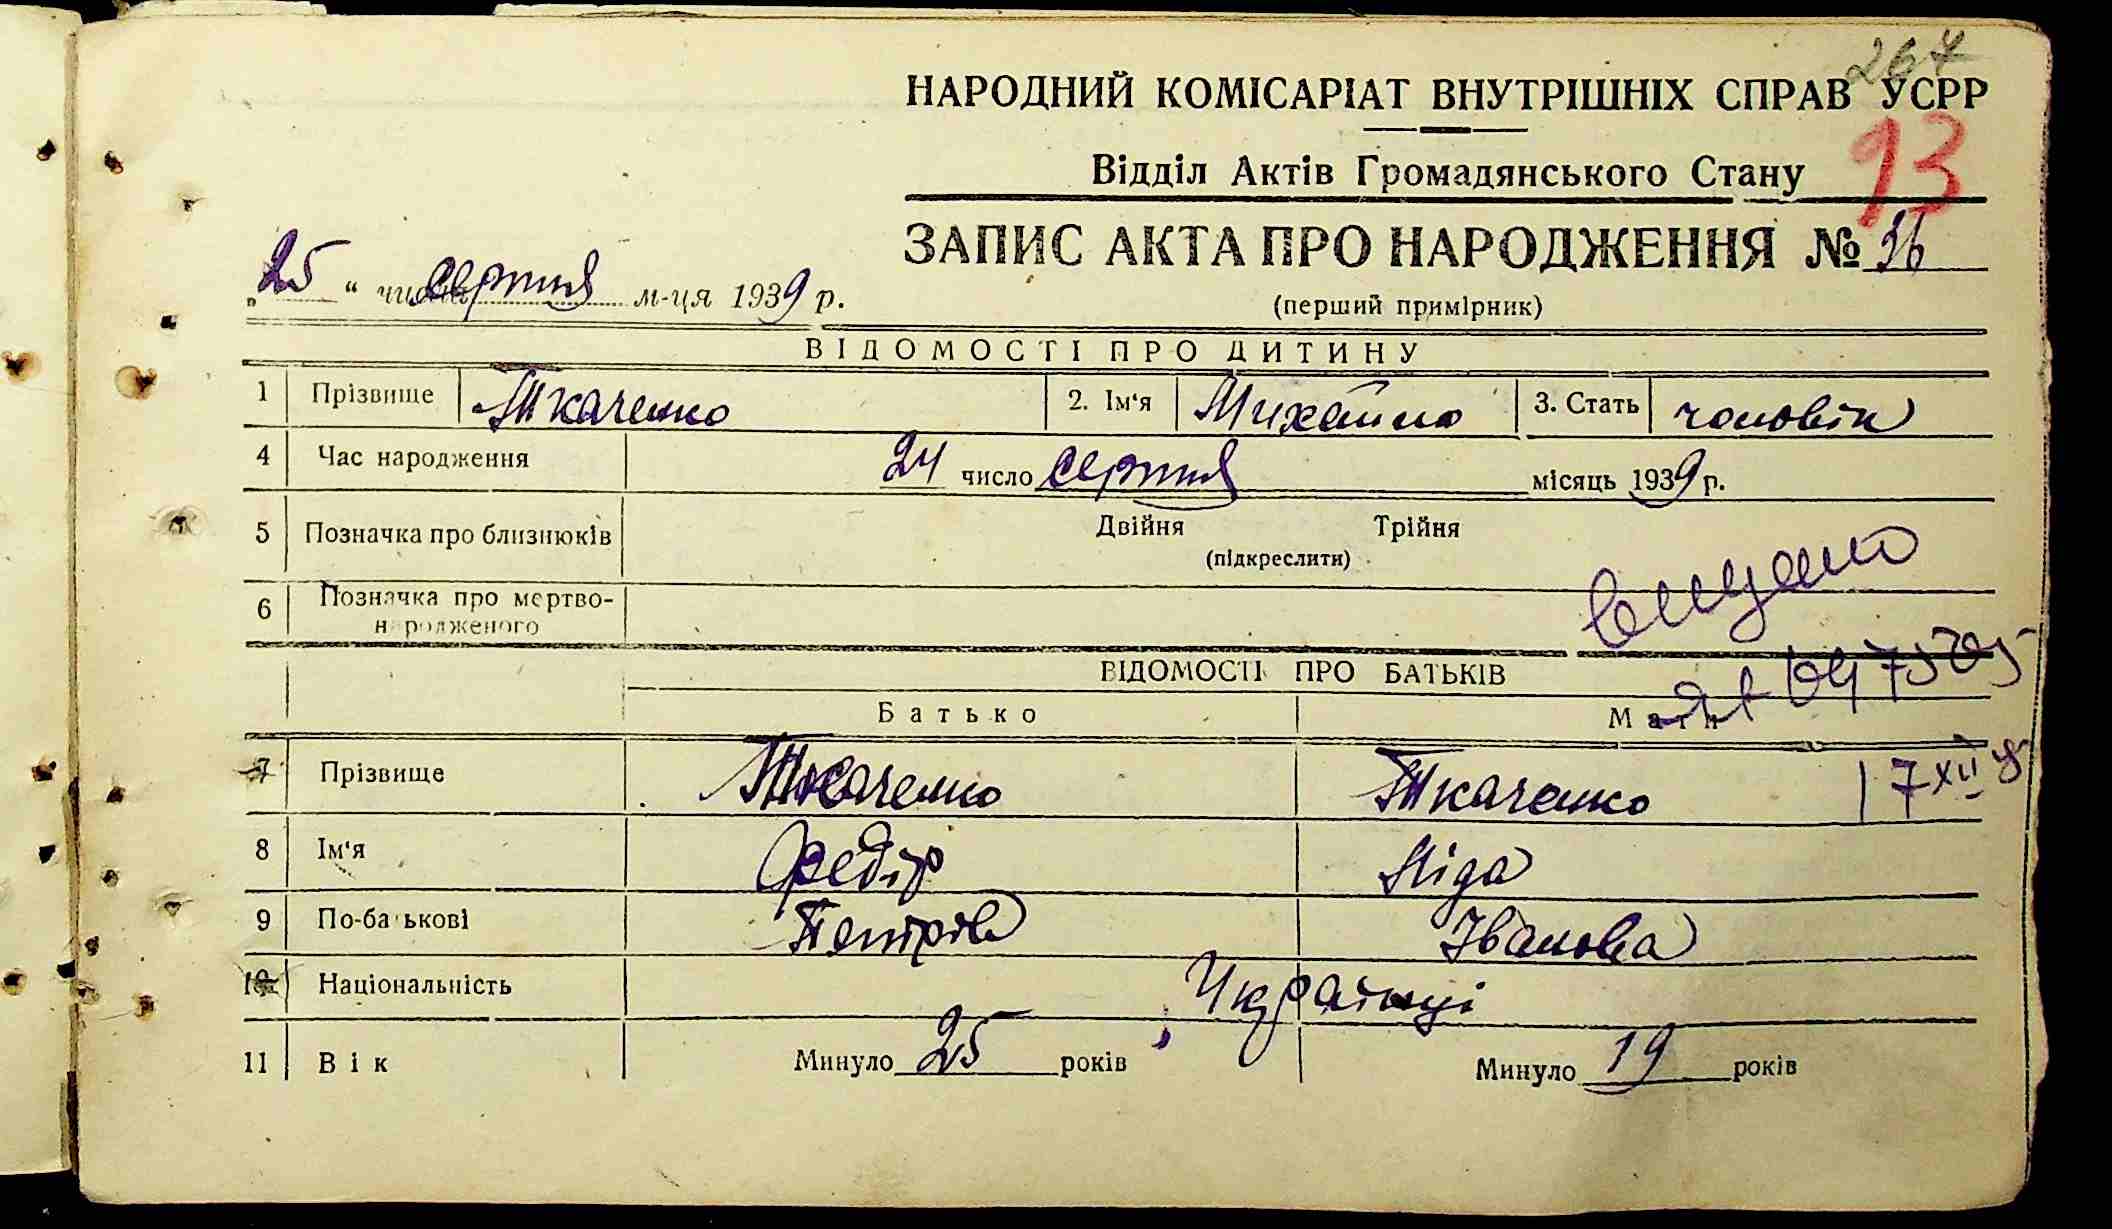 267
НАРОДНИЙ КОМІСАРІАТ ВНУТРІШНІХ СПРАВ УСРР
Відділ Актів Громадянського Стану 93
ЗАПИС АКТА ПРО НАРОДЖЕННЯ № 36
„25“ числа серпня м-ця 1939 р.
(перший примірник)
ВІДОМОСТІ ПРО ДИТИНУ
1 Прізвище Ткаченко 2. Ім'я Михайло 3. Стать чоловік
4 Час народження 24 число серпня місяць 1939 р.
5 Позначка про близнюків Двійня Трійня
(підкреслити)
6 Позначка про мертво-
народженого
ВІДОМОСТІ ПРО БАТЬКІВ
Батько Мати
7 Прізвище Ткаченко Ткаченко 17 XII
8 Ім'я Федір Ліда
9 По-батькові Петрів Іванова
10 Національність Українці
11 Вік Минуло 25 років Минуло 19 років